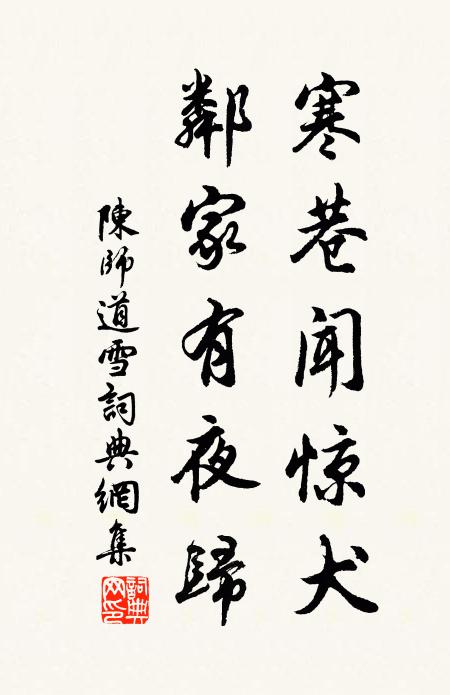 寒巷闻惊犬
鄰家有夜歸
陳師道雪詞典網集
詞典网印